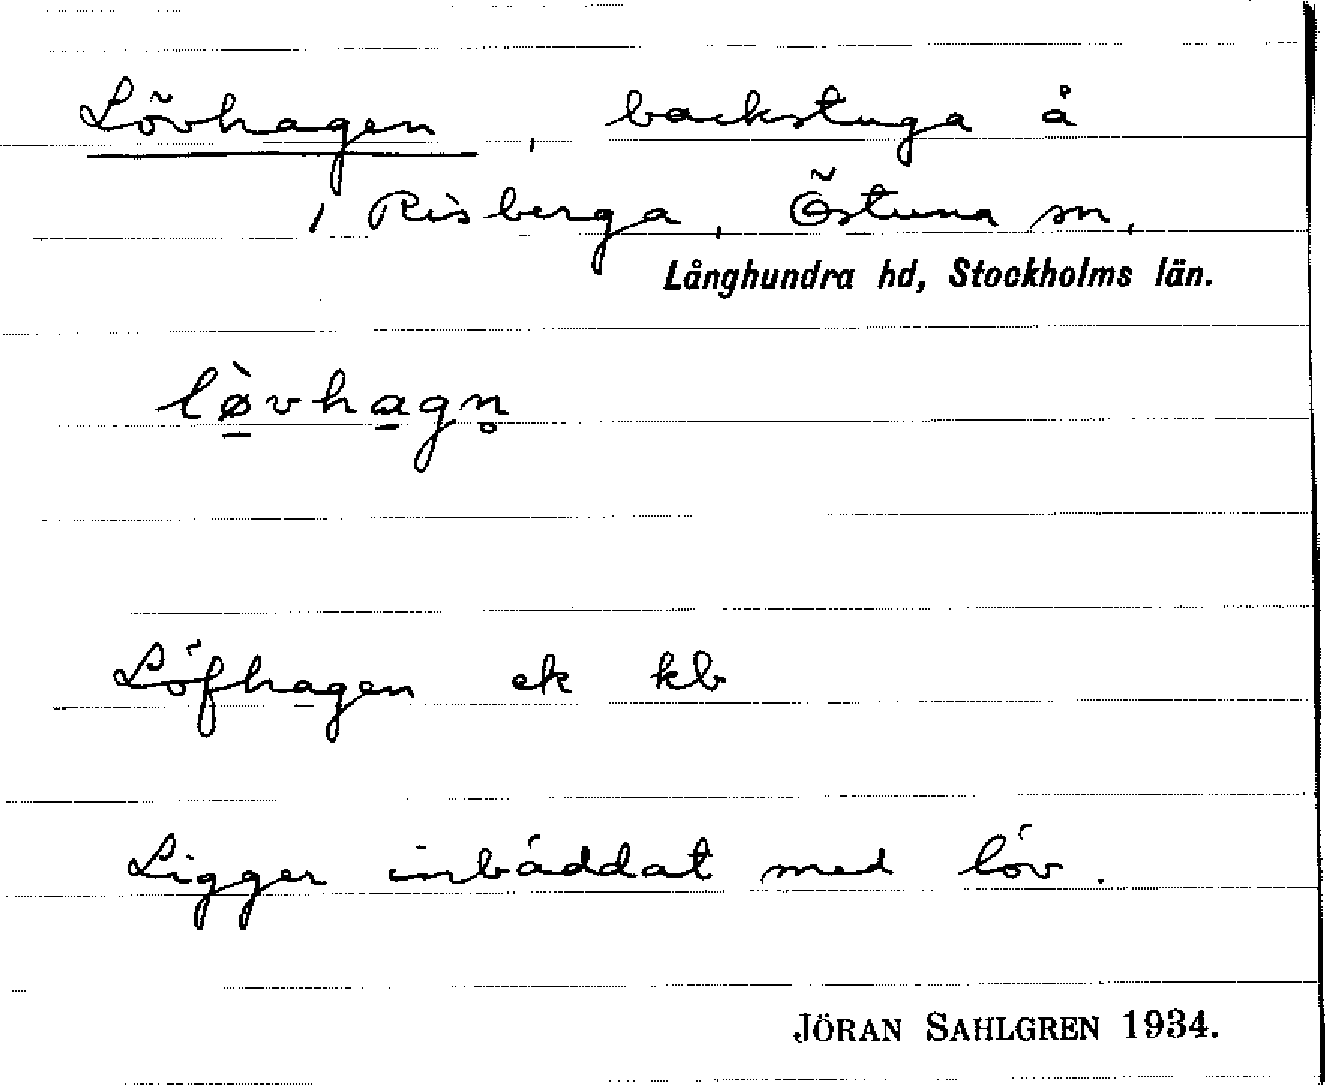 Lövhagen, backstuga å
1 Risberga, Östuna sn,
Långhundra hd, Stockholms län.
lø̱̀vha̱gn̥
Löfhagen ek kb
Ligger inbäddat med löv.
JÖRAN SAHLGREN 1934.